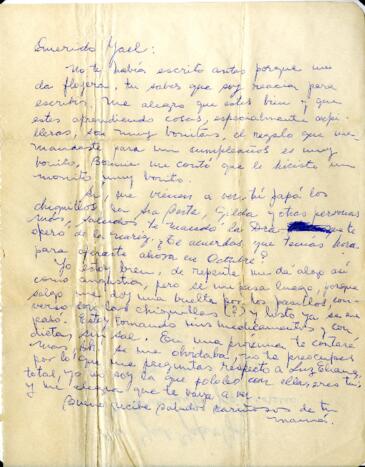 Querido Yael:
No te había escrito antes porque me
da flojera, tu sabes que soy reacia para
escribir. Me alegra que estés bien y que
estes aprendiendo cosas, especialmente arpi-
lleras, son muy bonitas, el regalo que me
mandaste para mi cumpleaños es muy
bonito, Bonnie me contó que le hiciste un
monito muy bonito.
Si, me vienen a ver, tú papá los
chiquillos, la Sra Berta, Gilda y otras personas
más, saludos te mandó la Dra que te
operó de la nariz, ¿Te acuerdas que tenías hora
para operarte ahora en Octubre?
Yo estoy bien, de repente me da algo así
como angustia, pero se me pasa luego, porque
salgo me doy una vuelta por los pasillos con-
verso con las chiquillas (?) y listo ya se me
pasó. Estoy tomando mis medicamentos y con
dieta, sin sal. En una próxima te contaré
más. Oh! se me olvidaba, no te preocupes
por lo que me preguntas respecto a
total, yo no soy la que pololeo con ella, eres tú
y me alegra que te vaya a ver
Bueno recibe saludos cariñosos de tu
mamá.